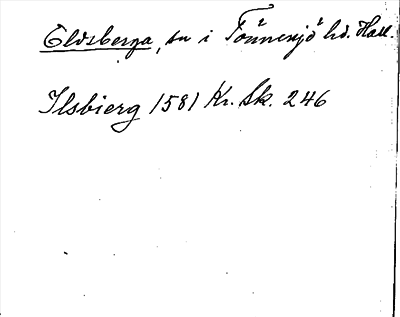 Eldsberga, sn i Tönnersjö hd. Hall.
Ilsbierg 1581 Kr. Sk. 246